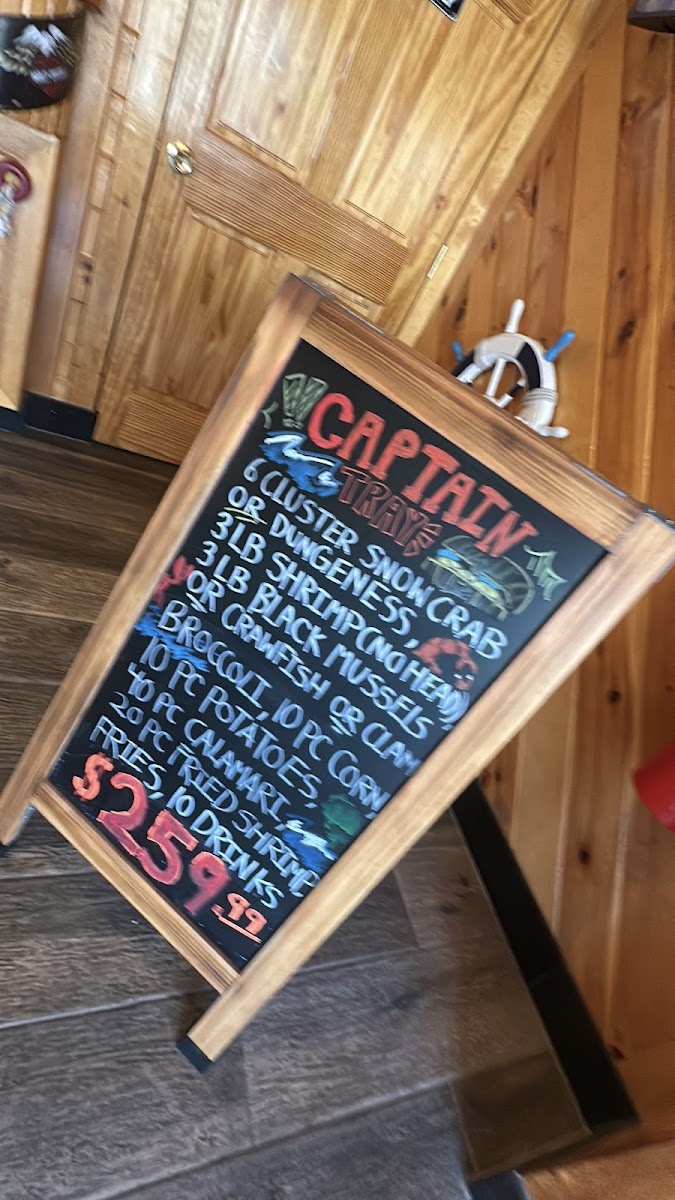 CAPTAIN
TRAY
6 CLUSTER SNOW CRAB
OR DUNGENESS,
3 LB SHRIMP (NO HEAD)
3 LB BLACK MUSSELS
OR CRAWFISH OR CLAM
BROCCOLI, 10 PC CORN,
10 PC POTATOES,
40 PC CALAMARI,
20 PC FRIED SHRIMP,
FRIES, 10 DRINKS
$259.99